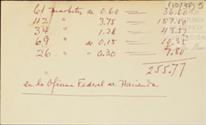 61 " a 0.60 — 36.60
42 " " 3.75 — 157.50
34 " " 1.28 — 43.52
69 " " 0.15 — 10.35
26 " " 0.30 — 7.80
255.77
en la Oficina Federal de Hacienda